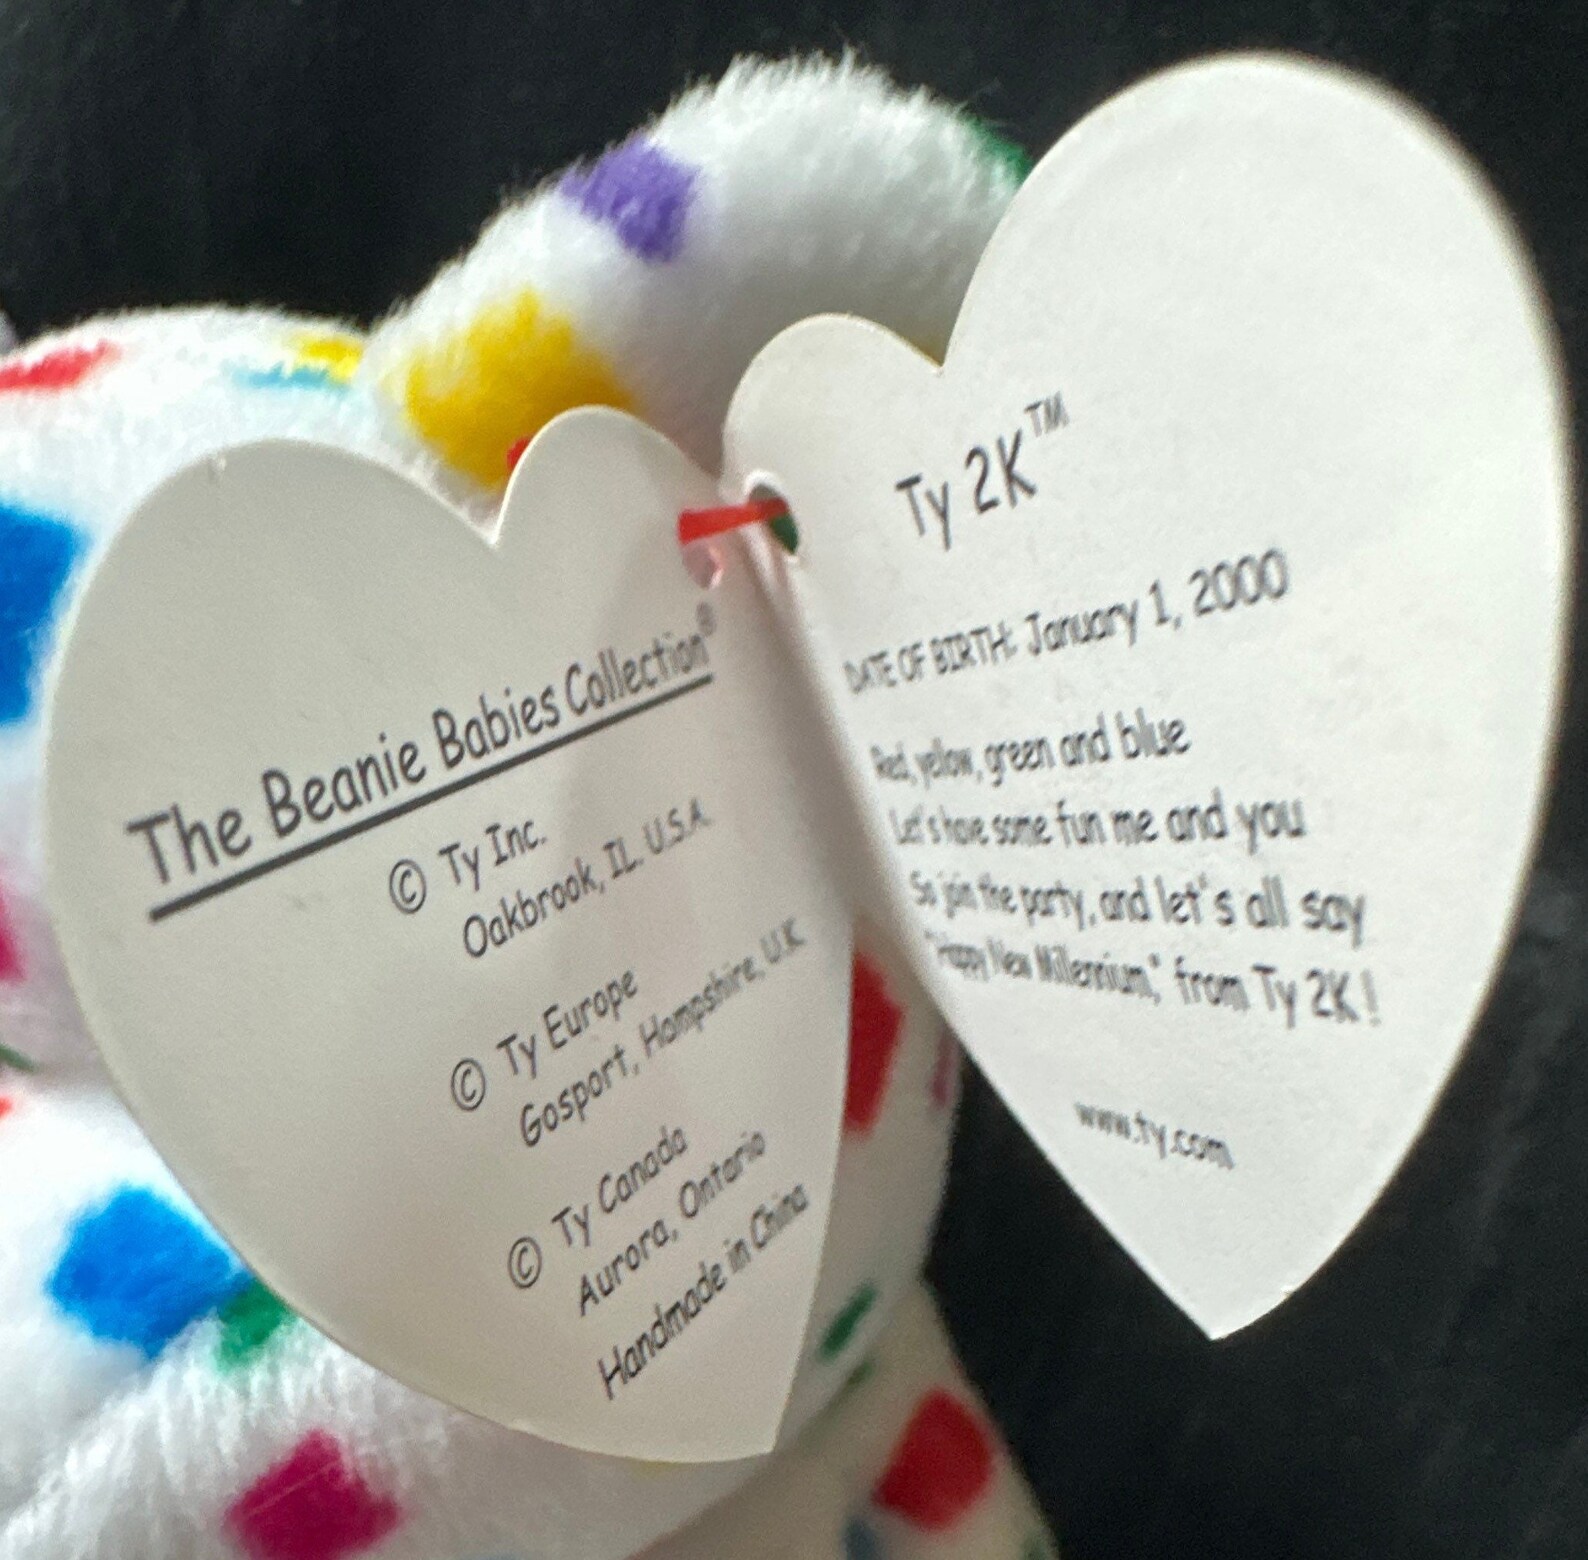 The Beanie Babies Collection®
© Ty Inc.
Oakbrook, IL. U.S.A.
© Ty Europe
Gosport, Hampshire, U.K.
© Ty Canada
Aurora, Ontario
Handmade in China
Ty 2K™
DATE OF BIRTH: January 1, 2000
Red, yellow, green and blue
Let's have some fun me and you
So join the party, and let's all say
"Happy New Millennium," from Ty 2K!
www.ty.com